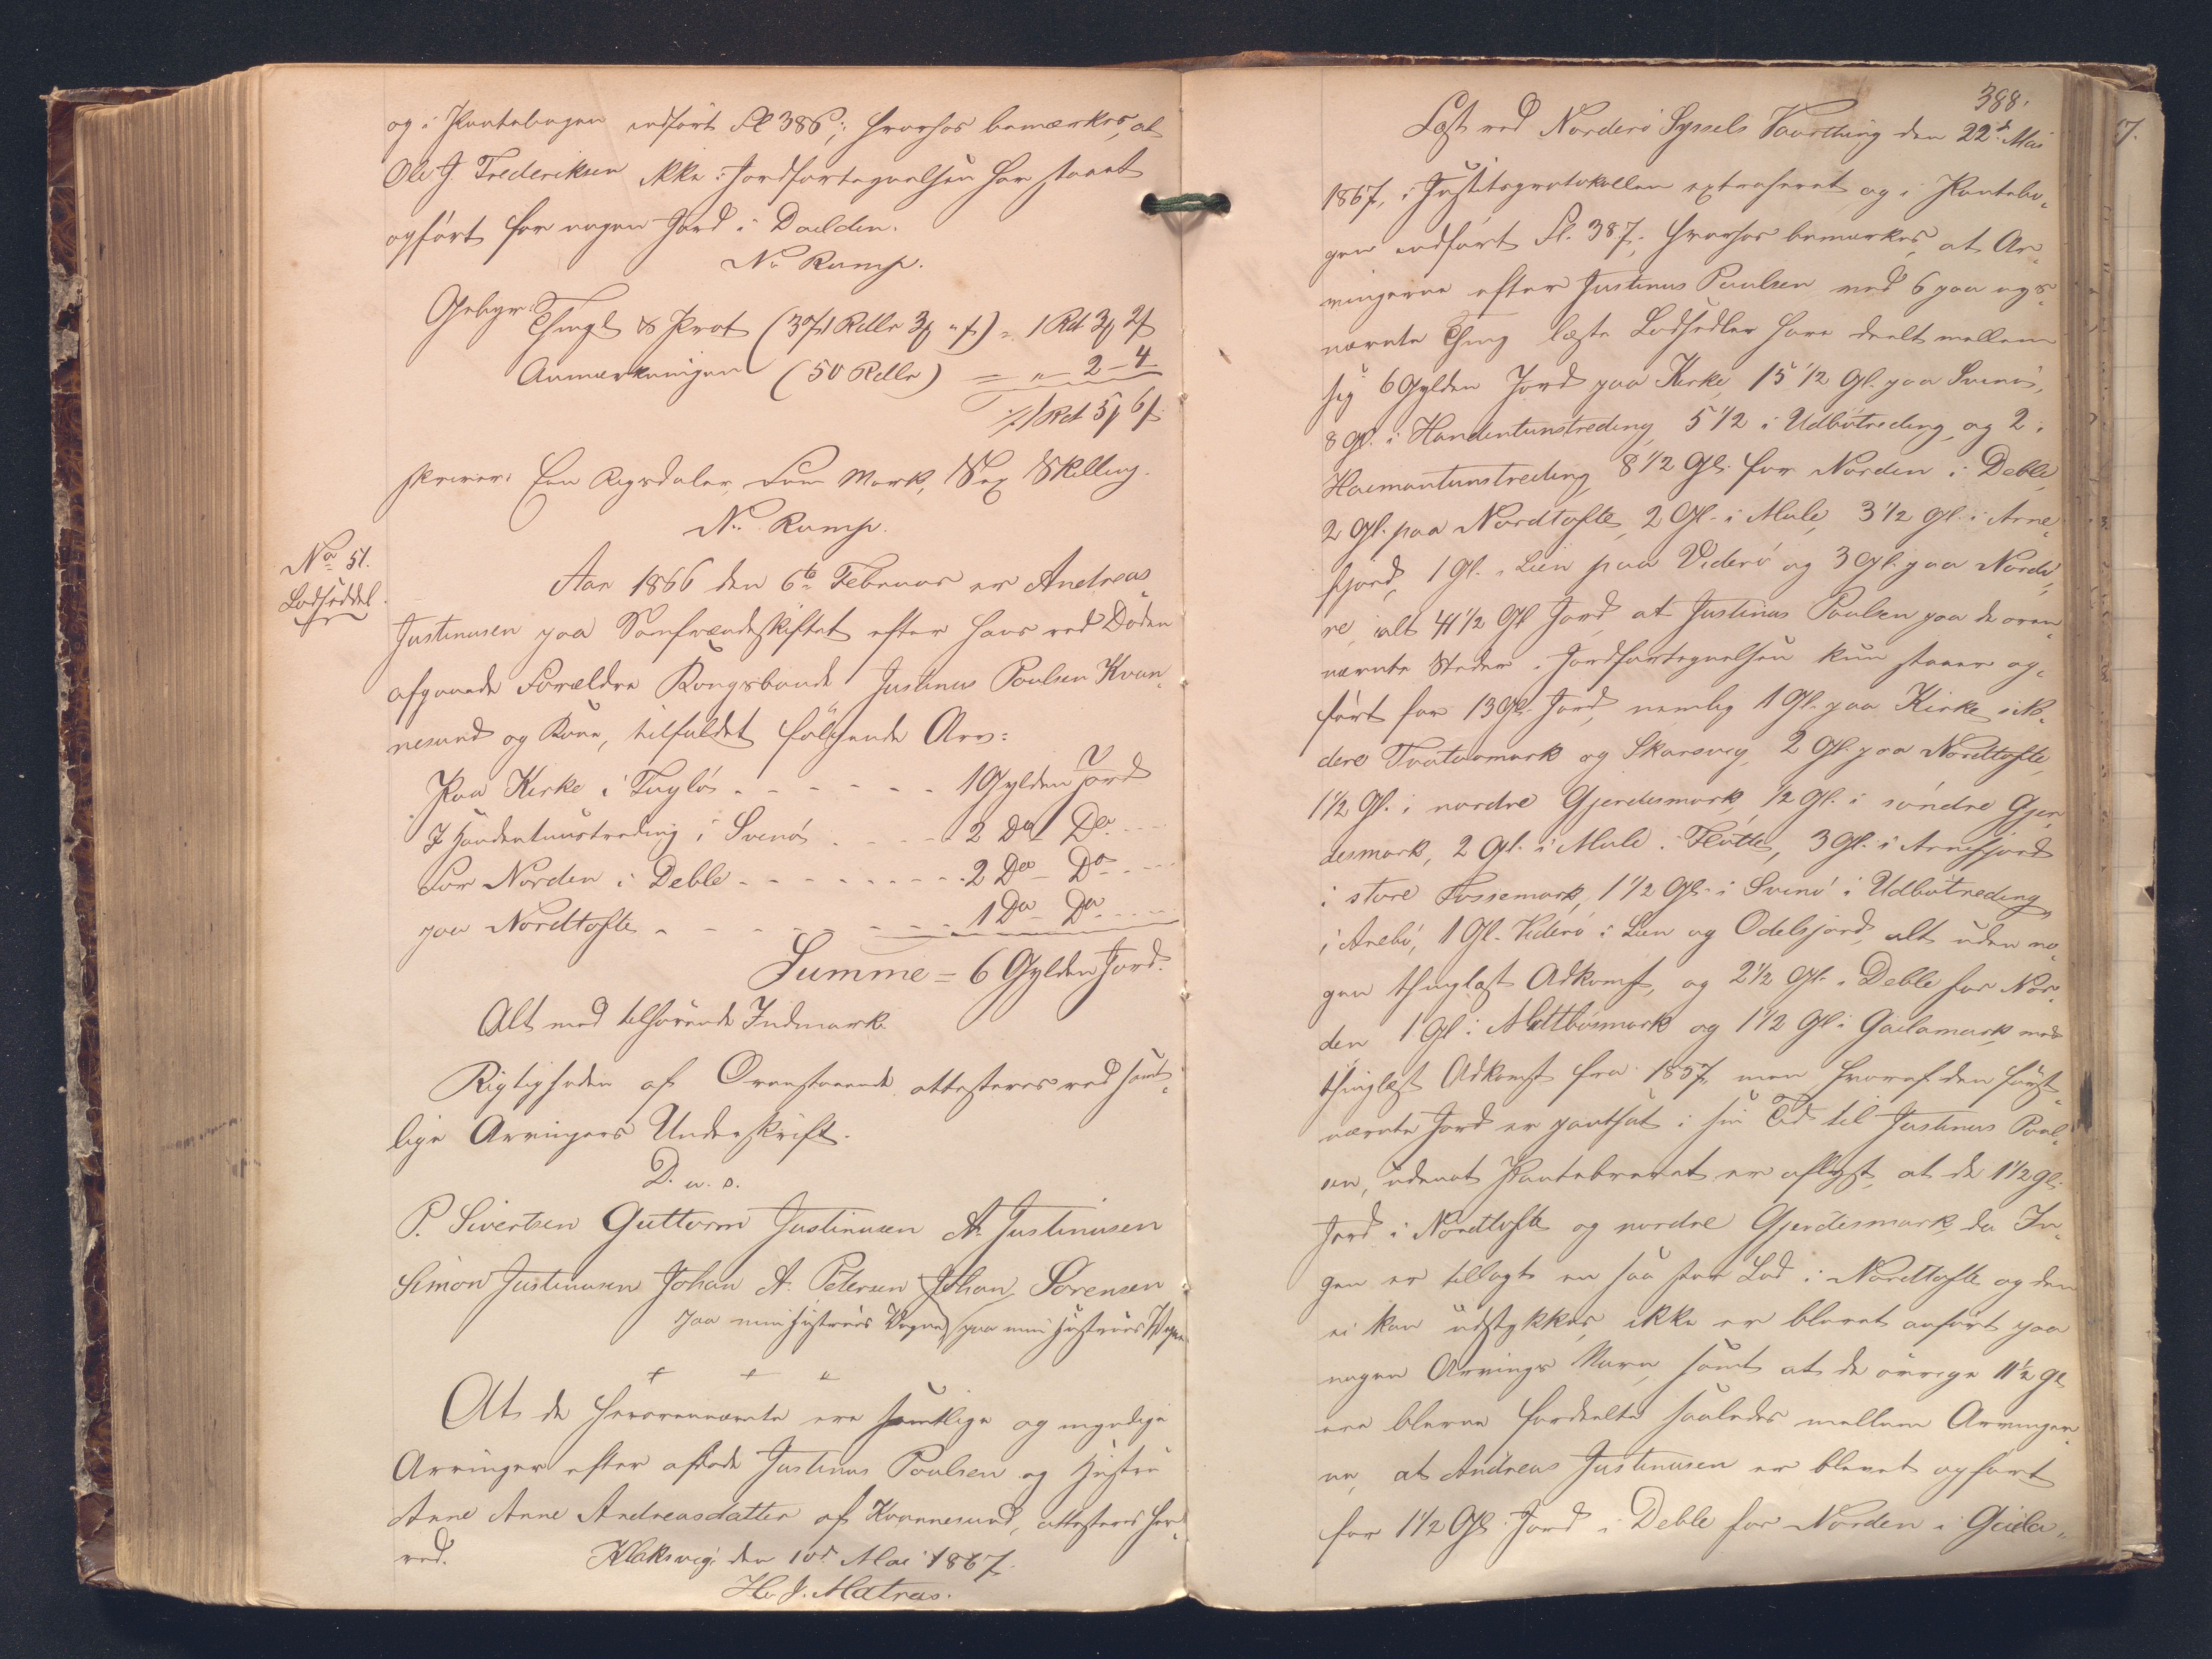 og i Pantebogen indført Fl 386; hvorhos bemærkes, at
Ole J. Frederiksen ikke i Jordfortegnelsen har staaet
opført for nogen Jord i Dalden.
N. Rump.
Gebyr: Thingl & Prot (371 Rdlr 3 ₰ " ß) = 1 Rd 3 ₰ 2 ß
Anmærkningen (50 Rdlr) = " — 2 — 4
1 Rd 5 ₰ 6 ß
skriver: Een Rigsdaler, Fem Mark, Sex Skilling.
N. Rump.
No 51.
Lodseddel.
Aar 1866 den 6te Februar er Andreas
Justinusen paa Samfrændeskiftet efter hans ved Døden
afgaaede Forældre Kongsbonde Justinus Poulsen Kvan-
nesund og Kone, tilfaldet følgende Arv:
Paa Kirke i Fuglø - - - - - - 1 Gylden Jord
I Handentunstreding i Svinø - - - - 2 Do Do
For Norden i Deble - - - - - - - - 2 Do - Do
paa Nordtofte - - - - - - - - 1 Do - Do
Summe = 6 Gylden Jord.
Alt med tilhørende Indmark.
Rigtigheden af Ovenstaaende attesteres ved samt-
lige Arvingers Underskrift.
D. u. s.
P. Sivertsen Guttorm Justinusen A. Justinusen
Simon Justinusen Johan A. Petersen Johan Sørensen
paa min Hustrues Vegne paa min Hustrues Vegne
+ + "
At de herovennævnte ere samtlige og myndige
Arvinger efter afdøde Justinus Poulsen og Hustru
Anne Anne Andreasdatter af Kvannesund, attesteres her-
ved. Klaksvig, den 10d Mai 1867.
H. J. Matras.
388.
Læst ved Norderø Syssels Vaarthing den 22d Mai
1867, i Justitsprotokollen extraheret og i Pantebo-
gen indført Fl. 387; hvorhos bemærkes, at Ar-
vingerne efter Justinus Poulsen ved 6 paa op-
nævnte Thing læste Lodsedler have deelt mellem
sig 6 Gylden Jord paa Kirke, 15 1/2 Gl. paa Svinø,
8 Gl. i Handentunstreding, 5 1/2 i Udbøtreding og 2 i
Heimantunstreding, 8 1/2 Gl. for Norden i Deble,
2 Gl. paa Nordtofte, 2 Gl. i Mule, 3 1/2 Gl. i Arne-
fjord, 1 Gl. i Lien paa Viderø og 3 Gl. paa Nordø-
re, ialt 41 1/2 Gl Jord, at Justinus Poulsen paa de oven-
nævnte Steder i Jordfortegnelsen kun staaer op-
ført for 13 Gl. Jord, nemlig 1 Gl. paa Kirke i No-
dere Tvatvamark og Skarsvig, 2 Gl. paa Nordtofte,
1 1/2 Gl. i nordre Gjerdesmark, 1/2 Gl. i søndre Gjer-
desmark, 2 Gl. i Mule i Fløtte, 3 Gl. i Arnefjord
i store Fossemark, 1 1/2 Gl. i Svinø i Udbøtreding
i Anebø, 1 Gl. Viderø i Lien og Odelsjord, alt uden no-
gen thinglæst Adkomst, og 2 1/2 Gl. i Deble for Nor-
den 1 Gl. i Mittbømark og 1 1/2 Gl. i Geilamark med
thinglæst Adkomst fra 1857, men hvoraf den først-
nævnte Jord er pantsat i sin Tid til Justinus Poul-
sen, udenat Pantebrevet er aflyst, at de 1 1/2 Gl.
Jord i Nordtofte og nordre Gjerdesmark, da In-
gen er tillagt en saa stor Lod i Nordtofte og den
ei kan udstykkes, ikke er blevet anført paa
nogen Arvings Navn, samt at de øvrige 11 1/2 Gl
ere blevne fordeelte saaledes mellem Arvinger-
ne, at Andreas Justinusen er blevet opført
for 1 1/2 Gl. Jord i Deble for Norden i Geila-